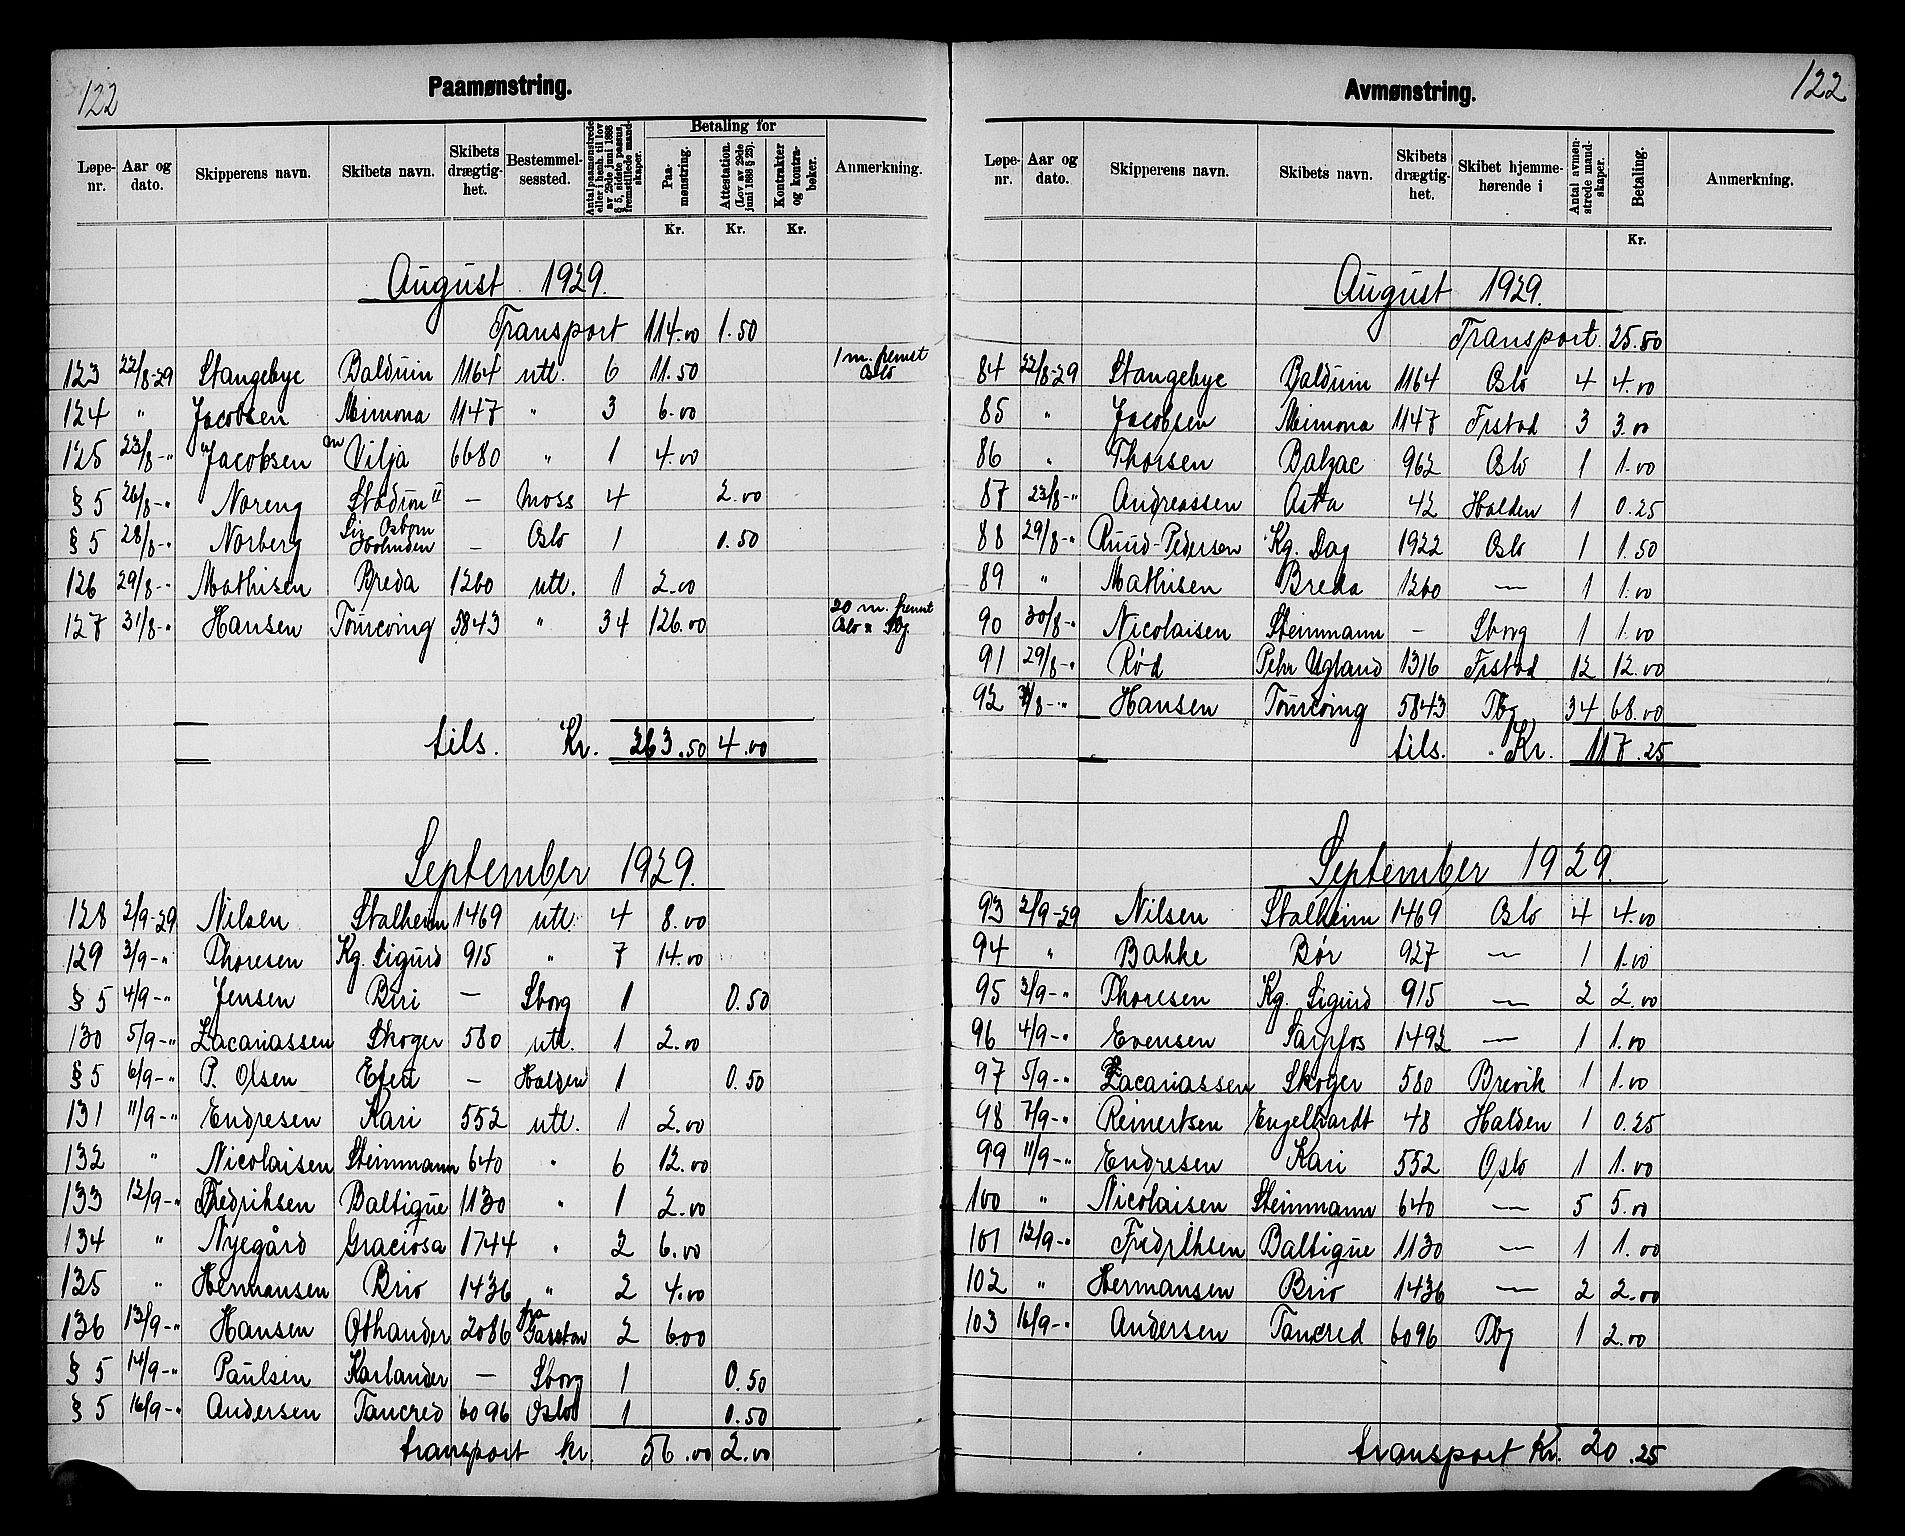 122
Paamønstring.
Løpe-nr. Aar og dato. Skipperens navn. Skibets navn. Skibets drægtig-het. Bestemmel-sessted. Antal paamønstrede eller i henh. til lov av 29de juni 1888 § 5, sidste passus, fremstillede mand-skaper. Betaling for Paa-mønstring. Attestation. (Lov av 29de juni 1888 § 23). Kontrakter og kontra-bøker. Anmerkning.
Kr. Kr. Kr.
August 1929.
Transport 114.00 1.50
123 22/8-29 Stangebye Balduin 1164 utl. 6 11.50 1 m. fremst Oslo
124 " Jacobsen Mimona 1147 " 3 6.00
125 23/8-" Jacobsen m Vilja 6680 " 1 4.00
§ 5 26/8-" Noreng Stadion II – Moss 4 2.00
§ 5 28/8-" Norberg Sir Osborn Holmden – Oslo 1 0.50
126 29/8-" Mathisen Breda 1260 utl. 1 2.00
127 31/8-" Hansen Tourcoing 5843 " 34 126.00 20 m. fremst Oslo & Tbg.
tils. Kr. 263.50 4.00
September 1929.
128 2/9-29 Nilsen Stalheim 1469 utl. 4 8.00
129 3/9-" Thoresen Kg. Sigurd 915 " 7 14.00
§ 5 4/9-" Jensen Biri – Sborg 1 0.50
130 5/9-" Zacariassen Skoger 580 utl. 1 2.00
§ 5 6/9-" P. Olsen – Halden 1 0.50
131 11/9-" Endresen Kari 552 utl. 1 2.00
132 " Nicolaisen Steinmann 640 " 6 12.00
133 12/9-" Fredriksen Baltique 1130 " 1 2.00
134 " Nyegård Graciosa 1744 " 2 6.00
135 " Hermansen Brio 1436 " 2 4.00
136 13/9-" Hansen Othander 2086 fra 2 6.00
§ 5 14/9-" Paulsen Karlander – Sborg 1 0.50
§ 5 16/9-" Andersen Tancred 6096 Oslo 1 0.50
transport kr. 56.00 2.00
122
Avmønstring.
Løpe-nr. Aar og dato. Skipperens navn. Skibets navn. Skibets drægtig-het. Skibet hjemme-hørende i Antal avmøn-strede mand-skaper. Betaling. Anmerkning.
Kr.
August 1929.
Transport. 25.50
84 22/8-29 Stangebye Balduin 1164 Oslo 4 4.00
85 " Jacobsen Mimona 1147 Frstad 3 3.00
86 " Thorsen Balzac 962 Oslo 1 1.00
87 23/8-" Andreassen Asta 42 Halden 1 0.25
88 29/8-" Ruud-Pedersen Kg. Dag 1922 Oslo 1 1.50
89 " Mathisen Breda 1260 — 1 1.00
90 30/8-" Nicolaisen Steinmann – Sborg 1 1.00
91 29/8-" Rød Pehr Ugland 1316 Frstad 12 12.00
92 31/8-" Hansen Tourcoing 5843 Tbg 34 68.00
tils. Kr. 117.25
September 1929.
93 2/9-29 Nilsen Stalheim 1469 Oslo 4 4.00
94 " Bakke Bør 927 — 1 1.00
95 3/9-" Thoresen Kg. Sigurd 915 — 2 2.00
96 4/9-" Evensen Sarpfos 1492 — 1 1.00
97 5/9-" Zacariassen Skoger 580 Brevik 1 1.00
98 7/9-" Reinertsen Engelhardt 48 Halden 1 0.25
99 11/9-" Endresen Kari 552 Oslo 1 1.00
100 " Nicolaisen Steinmann 640 — 5 5.00
101 12/9-" Fredriksen Baltique 1130 — 1 1.00
102 " Hermansen Brio 1436 — 2 2.00
103 16/9-" Andersen Tancred 6096 Tbg 1 2.00
transport Kr. 20.25